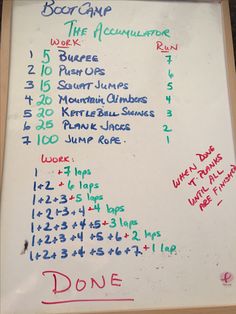 BOOT CAMP
THE ACCUMULATOR
WORK RUN
1 5 BURPEE 7
2 10 PUSH UPS 6
3 15 SQUAT JUMPS 5
4 20 MOUNTAIN CLIMBERS 4
5 20 KETTLE BELL SWINGS 3
6 25 PLANK JACKS 2
7 100 JUMP ROPE. 1
WORK:
1 +7 laps
1+2 +6 laps
1+2+3 +5 laps
1+2+3+4 +4 laps
1+2+3+4+5 +3 laps
1+2+3+4+5+6 +2 laps
1+2+3+4+5+6+7 +1 lap
WHEN DONE
T. PLANKS
UNTIL ALL
ARE FINISHED
DONE